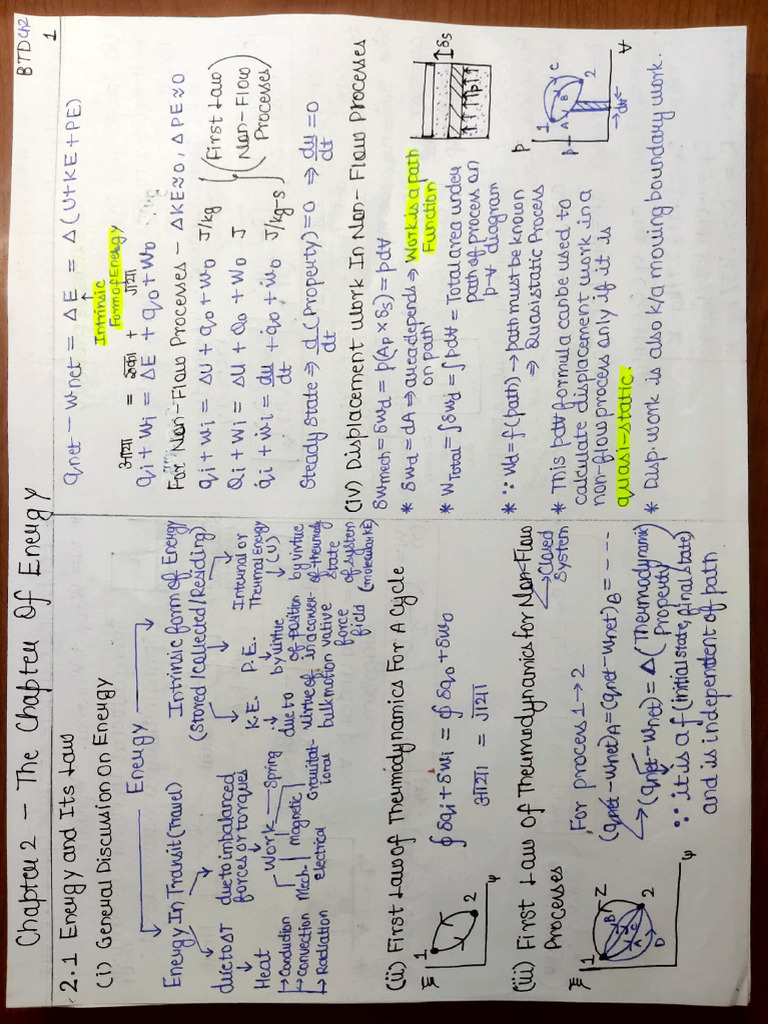 BTD Ch2
1
Chapter 2 - The Chapter Of Energy
2.1 Energy and Its Law
(i) General Discussion on Energy
Energy
Energy In Transit (Travel)
due to ΔT
Heat
→ Conduction
→ Convection
→ Radiation
due to imbalanced
forces or torques
Work
Mech.
Electrical
Magnetic
Spring
Gravitat-
ional
Intrinsic form of Energy
(Stored/Collected/Residing)
K.E.
due to
virtue of
bulk motion
P.E.
by virtue
of position
in a conser-
vative
force
field
Internal or
Thermal Energy
(U)
by virtue
of thermody
state
of system
(molecular KE)
(ii) First Law of Thermodynamics For A Cycle
ξ
1
2
ψ
∮ δqi + δwi = ∮ δqo + δwo
आया = गया
(iii) First Law of Thermodynamics for Non-Flow
Processes
→ Closed
System
ξ
1
B
Z
A
C
D
2
ψ
For process 1→2
(qnet - wnet)A = (qnet - wnet)B = ----
→ (qnet - wnet) = Δ (Thermodynamic
Property)
∵ it is a f (initial state, final state)
and is independent of path
qnet - wnet = ΔE = Δ(U+KE+PE)
Intrinsic
Form of Energy
आया = रुका + गया
qi + wi = ΔE + qo + wo
For Non-Flow Processes - ΔKE≈0, ΔPE≈0
qi + wi = Δu + qo + wo J/kg
Qi + Wi = ΔU + Qo + Wo J
q̇i + ẇi = du/dt + q̇o + ẇo J/kg-s
(First Law)
(Non-Flow
Processes)
Steady State ⇒ d/dt (Property) = 0 ⇒ du/dt = 0
(iv) Displacement Work In Non-Flow Processes
δWmech = δWd = p(Ap × δs) = pdV
δs
P
* δWd = dA ⇒ area depends ⇒ Work is a path
on path Function
* WTotal = ∫δWd = ∫pdV = Total area under
path of process on
p-V diagram
* ∵ Wd = f(path) → path must be known
⇒ Quasi static Process
p
1
p
A
B
C
2
→dV←
V
* This pdV formula can be used to
calculate displacement work in a
non-flow process only if it is
quasi-static.
* Disp. work is also k/a moving boundary work.